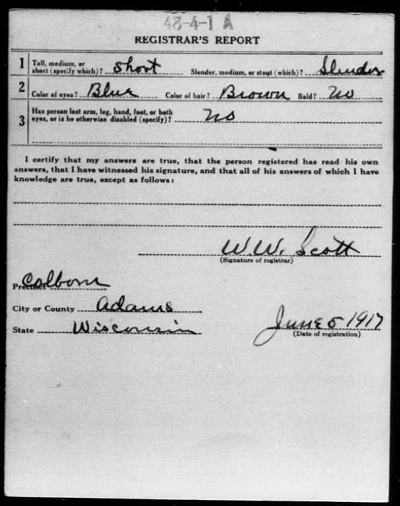 48-4-1 A
REGISTRAR'S REPORT
1 Tall, medium, or short (specify which)? Short Slender, medium, or stout (which)? Slender
2 Color of eyes? Blue Color of hair? Brown Bald? No
3 Has person lost arm, leg, hand, foot, or both eyes, or is he otherwise disabled (specify)? No
I certify that my answers are true, that the person registered has read his own
answers, that I have witnessed his signature, and that all of his answers of which I have
knowledge are true, except as follows:
W.W. Scott
(Signature of registrar)
Precinct Colborn
City or County Adams
State Wisconsin
June 5 1917
(Date of registration)